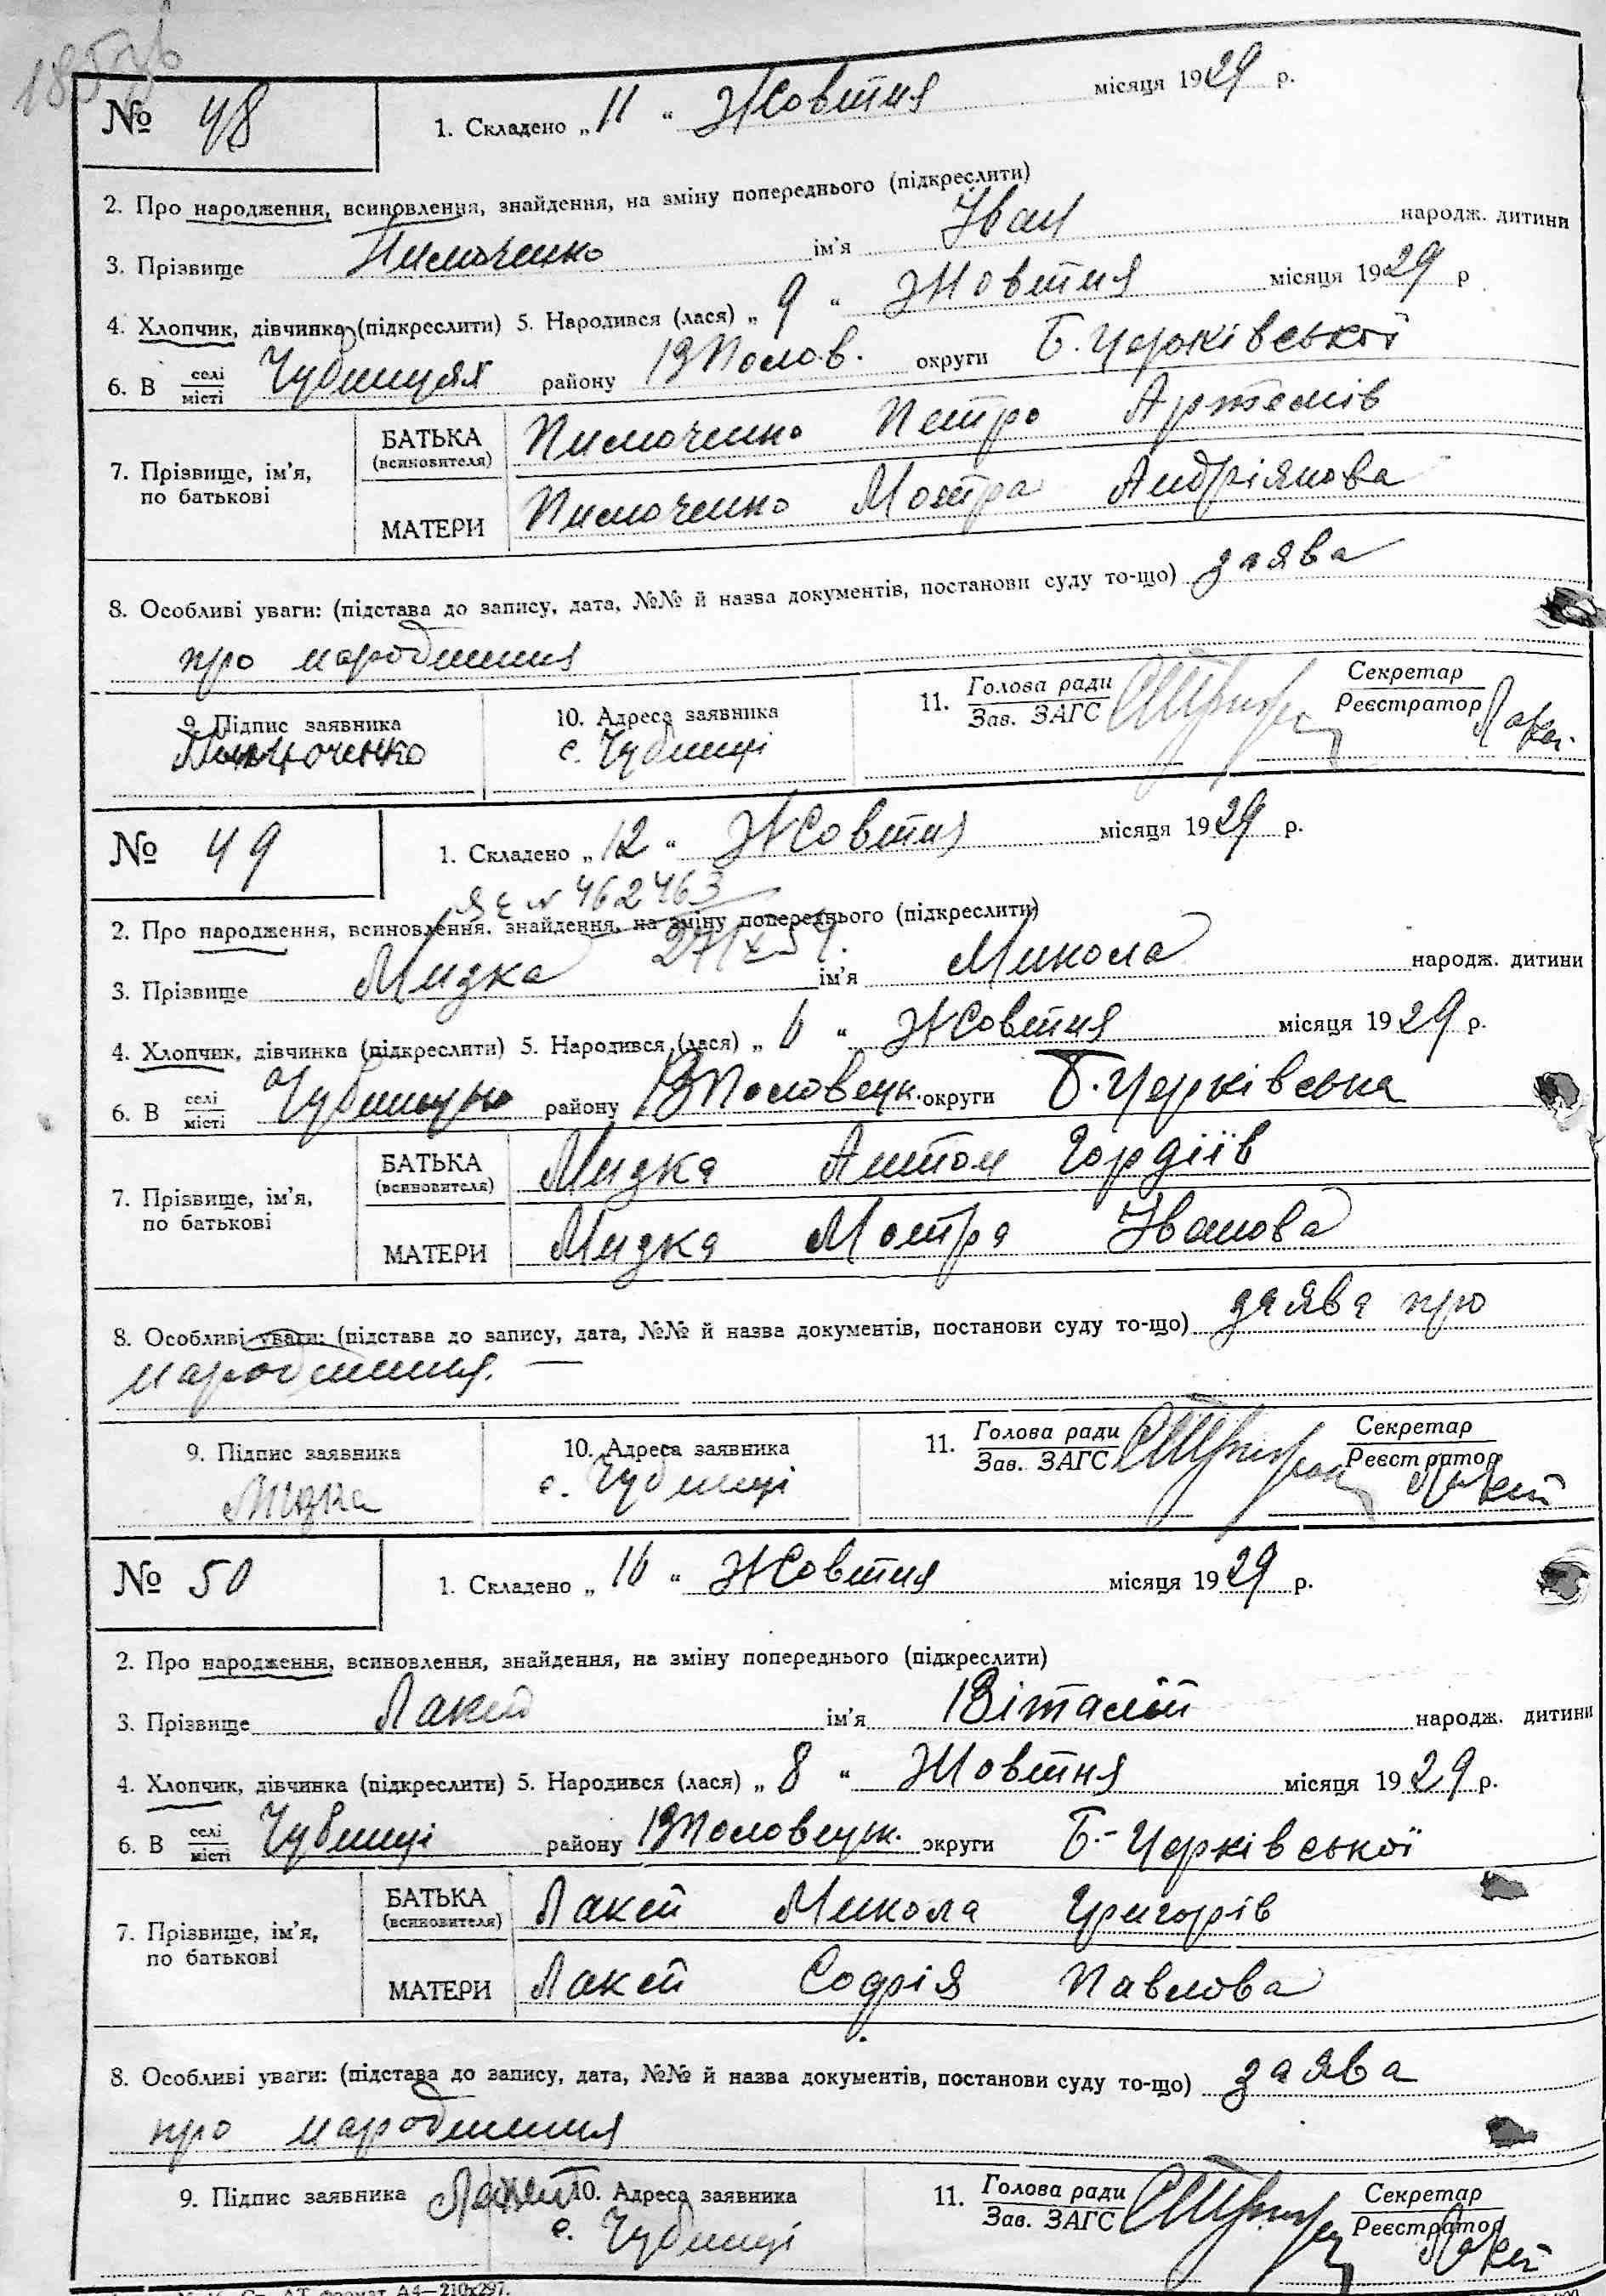 185зв
№ 48
1. Складено „ 11 “ Жовтня місяця 1929 р.
2. Про народження, всиновлення, знайдення, на зміну попереднього (підкреслити)
3. Прізвище Пимоченко ім’я Іван народж. дитини
4. Хлопчик, дівчинка (підкреслити) 5. Народився (лася) „ 9 “ Жовтня місяця 1929 р
6. В селі/місті Чубинцях району В Полов. округи Б. Церківської
7. Прізвище, ім’я, по батькові
БАТЬКА (всиновителя) Пимоченко Петро Артемів
МАТЕРИ Пимоченко Мотра Андріянова
8. Особливі уваги: (підстава до запису, дата, №№ й назва документів, постанови суду то-що) заява
про народження
9. Підпис заявника 10. Адреса заявника 11. Голова ради/Зав. ЗАГС Секретар/Реєстратор
с. Чубинці
№ 49
1. Складено „ 12 “ Жовтня місяця 1929 р.
462463
2. Про народження, всиновлення, знайдення, на зміну попереднього (підкреслити)
3. Прізвище Мизка ім’я Микола народж. дитини
4. Хлопчик, дівчинка (підкреслити) 5. Народився (лася) „ 6 “ Жовтня місяця 1929 р.
6. В селі/місті району В Половецк. округи Б. Церківська
7. Прізвище, ім’я, по батькові
БАТЬКА (всиновителя) Мизка Антон Гордіїв
МАТЕРИ Мизка Мотря Іванова
8. Особливі уваги: (підстава до запису, дата, №№ й назва документів, постанови суду то-що) заява про
народження. —
9. Підпис заявника 10. Адреса заявника 11. Голова ради/Зав. ЗАГС Секретар/Реєстратор
Мизка с. Чубинці Лакей
№ 50
1. Складено „ 16 “ Жовтня місяця 1929 р.
2. Про народження, всиновлення, знайдення, на зміну попереднього (підкреслити)
3. Прізвище Лакей ім’я Віталій народж. дитини
4. Хлопчик, дівчинка (підкреслити) 5. Народився (лася) „ 8 “ Жовтня місяця 1929 р.
6. В селі/місті Чубинці району В Половецьк. округи Б.-Церківської
7. Прізвище, ім’я, по батькові
БАТЬКА (всиновителя) Лакей Микола Григорів
МАТЕРИ Лакей Софія Павлова
8. Особливі уваги: (підстава до запису, дата, №№ й назва документів, постанови суду то-що) заява
про народження
9. Підпис заявника Лакей 10. Адреса заявника 11. Голова ради/Зав. ЗАГС Секретар/Реєстратор
с. Чубинці Лакей
формат А4—210х297.